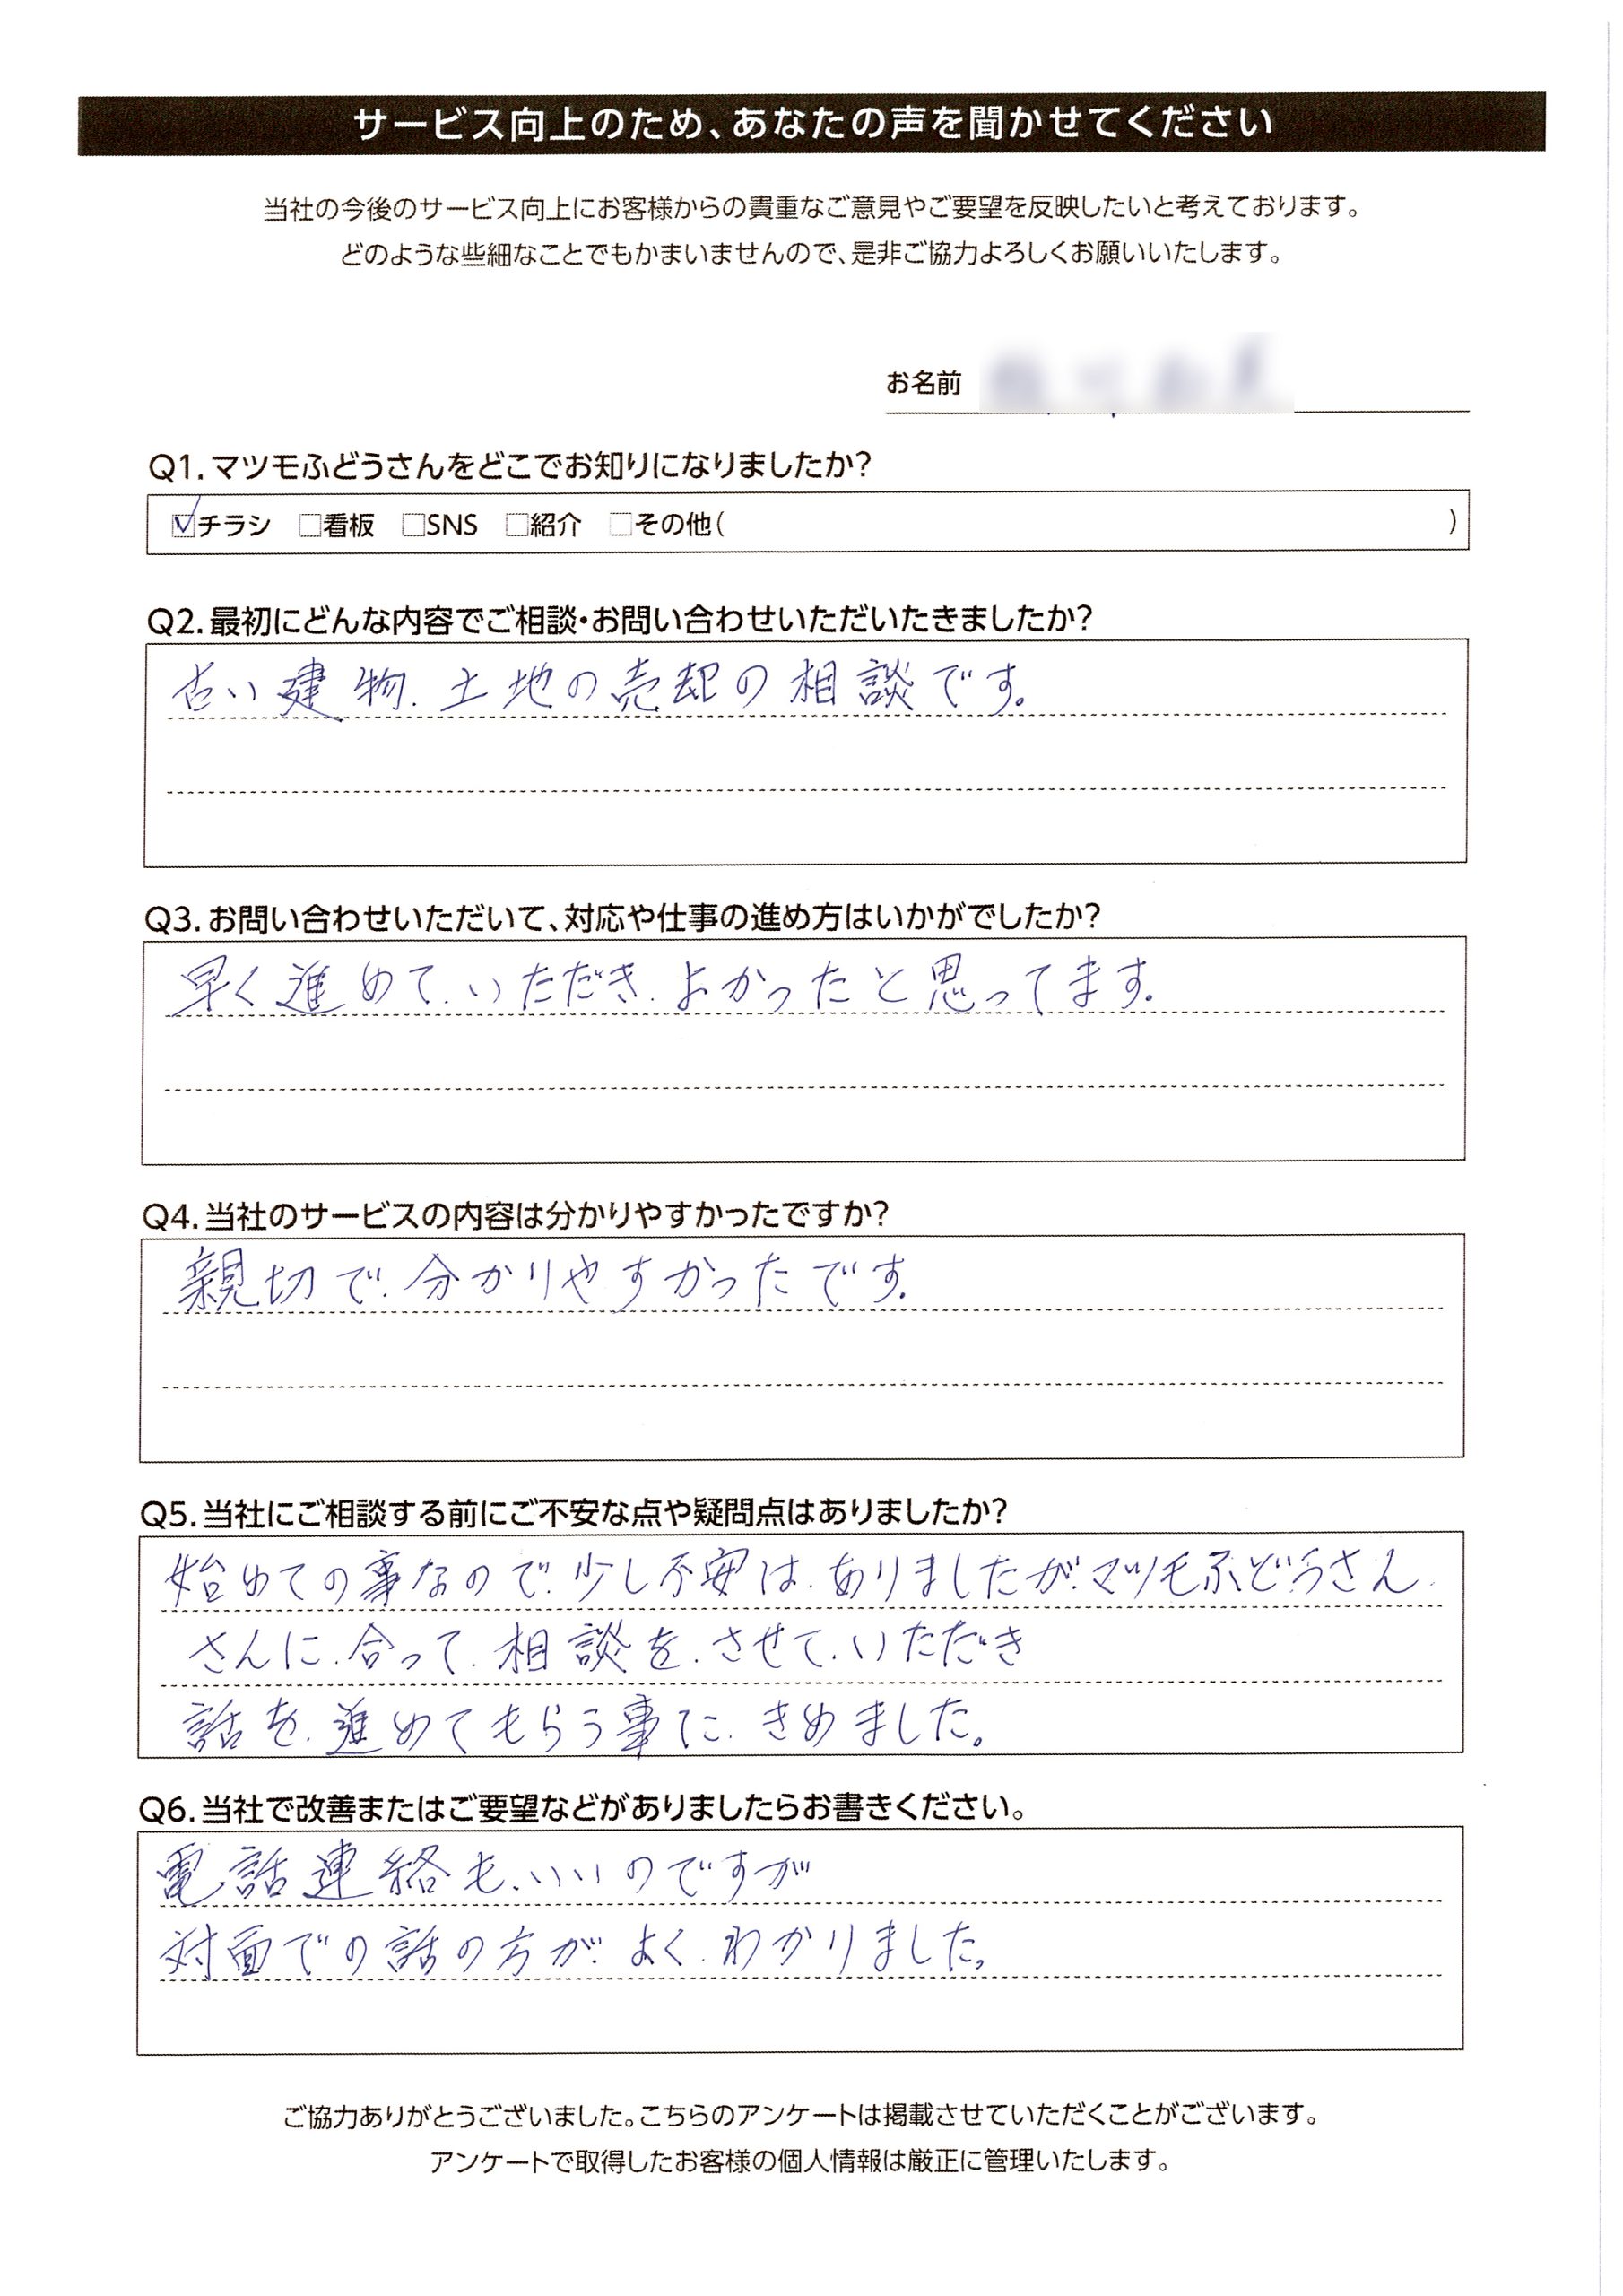 サービス向上のため、あなたの声を聞かせてください
当社の今後のサービス向上にお客様からの貴重なご意見やご要望を反映したいと考えております。
どのような些細なことでもかまいませんので、是非ご協力よろしくお願いいたします。
お名前
Q1.マツモふどうさんをどこでお知りになりましたか?
☑チラシ □看板 □SNS □紹介 □その他( )
Q2.最初にどんな内容でご相談・お問い合わせいただいたきましたか?
古い建物.土地の売却の相談です。
Q3.お問い合わせいただいて、対応や仕事の進め方はいかがでしたか?
早く進めて.いただき.よかったと思ってます。
Q4.当社のサービスの内容は分かりやすかったですか?
親切で.分かりやすかったです。
Q5.当社にご相談する前にご不安な点や疑問点はありましたか?
始めての事なので.少し不安は.ありましたが.マツモふどうさん.
さんに.合って.相談を.させて.いただき
話を.進めてもらう事に.きめました。
Q6.当社で改善またはご要望などがありましたらお書きください。
電話連絡も、いいのですが
対面での話の方が.よく.わかりました。
ご協力ありがとうございました。こちらのアンケートは掲載させていただくことがございます。
アンケートで取得したお客様の個人情報は厳正に管理いたします。